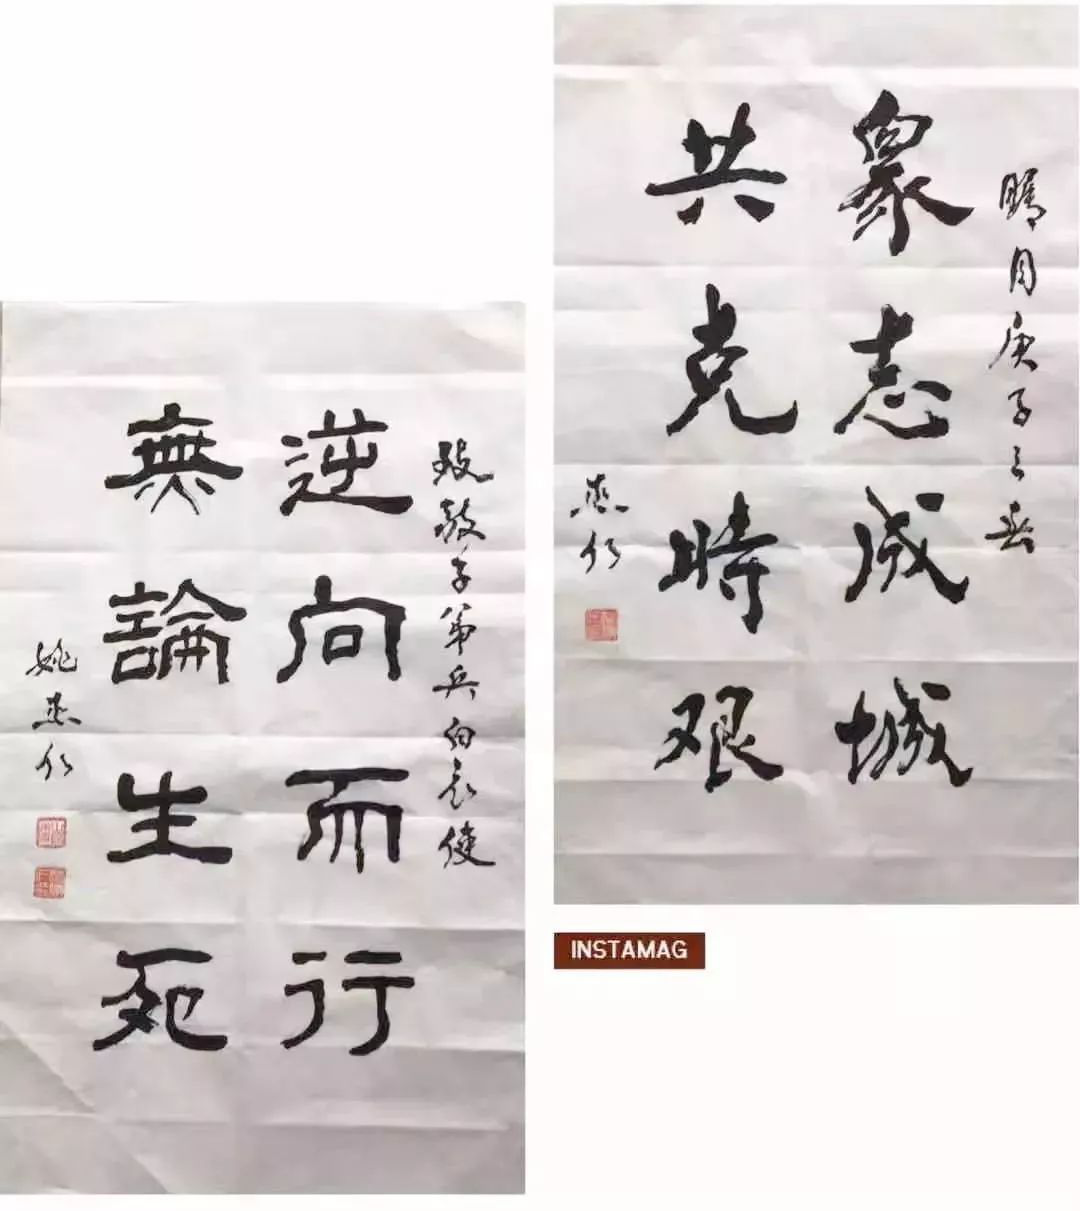 致敬子弟兵白衣使
逆向而行
無論生死
姚 仁
月庚子之春
眾志成城
共克時艱
仁
INSTAMAG